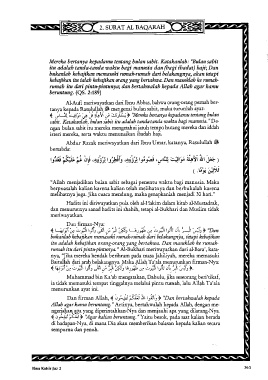 2. SURAT AL BAQARAH
Mereka bertanya kepadamu tentang bulan sabit. Katakanlah: "Bulan sabit
itu adalah tanda-tanda waktu bagi manusia dan (bagi ibadat) haji; Dan
bukanlah kebajikan memasuki rumah-rumah dari belakangnya, akan tetapi
kebajikan itu ialah kebajikan orang yang bertakwa. Dan masuklah ke rumah-
rumah itu dari pintu-pintunya; dan bertakwalah kepada Allah agar kamu
beruntung. (QS. 2:189)
Al-Aufi meriwayatkan dari Ibnu Abbas, bahwa orang-orang pernah ber-
tanya kepada Rasulullah ﷺ mengenai bulan sabit, maka turunlah ayat:
"Mereka bertanya kepadamu tentang bulan
sabit. Katakanlah, bulan sabit itu adalah tanda-tanda waktu bagi manusia." De-
ngan bulan sabit itu mereka mengetahui jatuh tempo hutang mereka dan iddah
isteri mereka, serta waktu haji mereka.
Abdur Razak meriwayatkan dari Ibnu Umar, katanya, Rasulullah ﷺ
bersabda:
( جَعَلَ اللهُ الأَهِلَّةَ مَوَاقِيْتَ لِلنَّاسِ، فَصُوْمُوْا لِرُؤْيَتِهِ، وَأَفْطِرُوْا لِرُؤْيَتِهِ، فَإِنْ غُمَّ عَلَيْكُمْ فَعُدُّوْا
ثَلاَثِيْنَ يَوْمًا. )
"Allah menjadikan bulan sabit sebagai penentu waktu bagi manusia. Maka
berpuasalah kalian karena kalian telah melihatnya dan berbukalah karena
melihatnya juga. Jika cuaca mendung, maka genapkanlah menjadi 30 hari."
Hadits ini diriwayatkan pula oleh al-Hakim dalam kitab al-Mustadrak,
dan menurutnya sanad hadits ini shahih, tetapi al-Bukhari dan Muslim tidak
meriwayatkan.
Dan firman-Nya:
"Dan
bukanlah kebajikan memasuki rumah-rumah dari belakangnya, akan tetapi kebajikan
itu adalah kebajikan orang-orang yang bertakwa. Dan masuklah ke rumah-
rumah itu dari pintu-pintunya." Al-Bukhari meriwayatkan dari al-Bara', kata-
nya, "Jika mereka hendak berihram pada masa jahiliyah, mereka memasuki
Baitullah dari arah belakangnya. Maka Allah Ta'ala menurunkan firman-Nya:
Muhammad bin Ka'ab mengatakan, Dahulu, jika seseorang beri'tikaf,
ia tidak memasuki tempat tinggalnya melalui pintu rumah, lalu Allah Ta'ala
menurunkan ayat ini.
Dan firman Allah, "Dan bertakwalah kepada
Allah agar kamu beruntung." Artinya, bertakwalah kepada Allah, dengan me-
ngerjakan apa yang diperintahkan-Nya dan menjauhi apa yang dilarang-Nya.
"Agar kalian beruntung." Yaitu besok, pada saat kalian berada
di hadapan-Nya, di mana Dia akan memberikan balasan kepada kalian secara
sempurna dan penuh.
Ibnu Katsir Juz 2